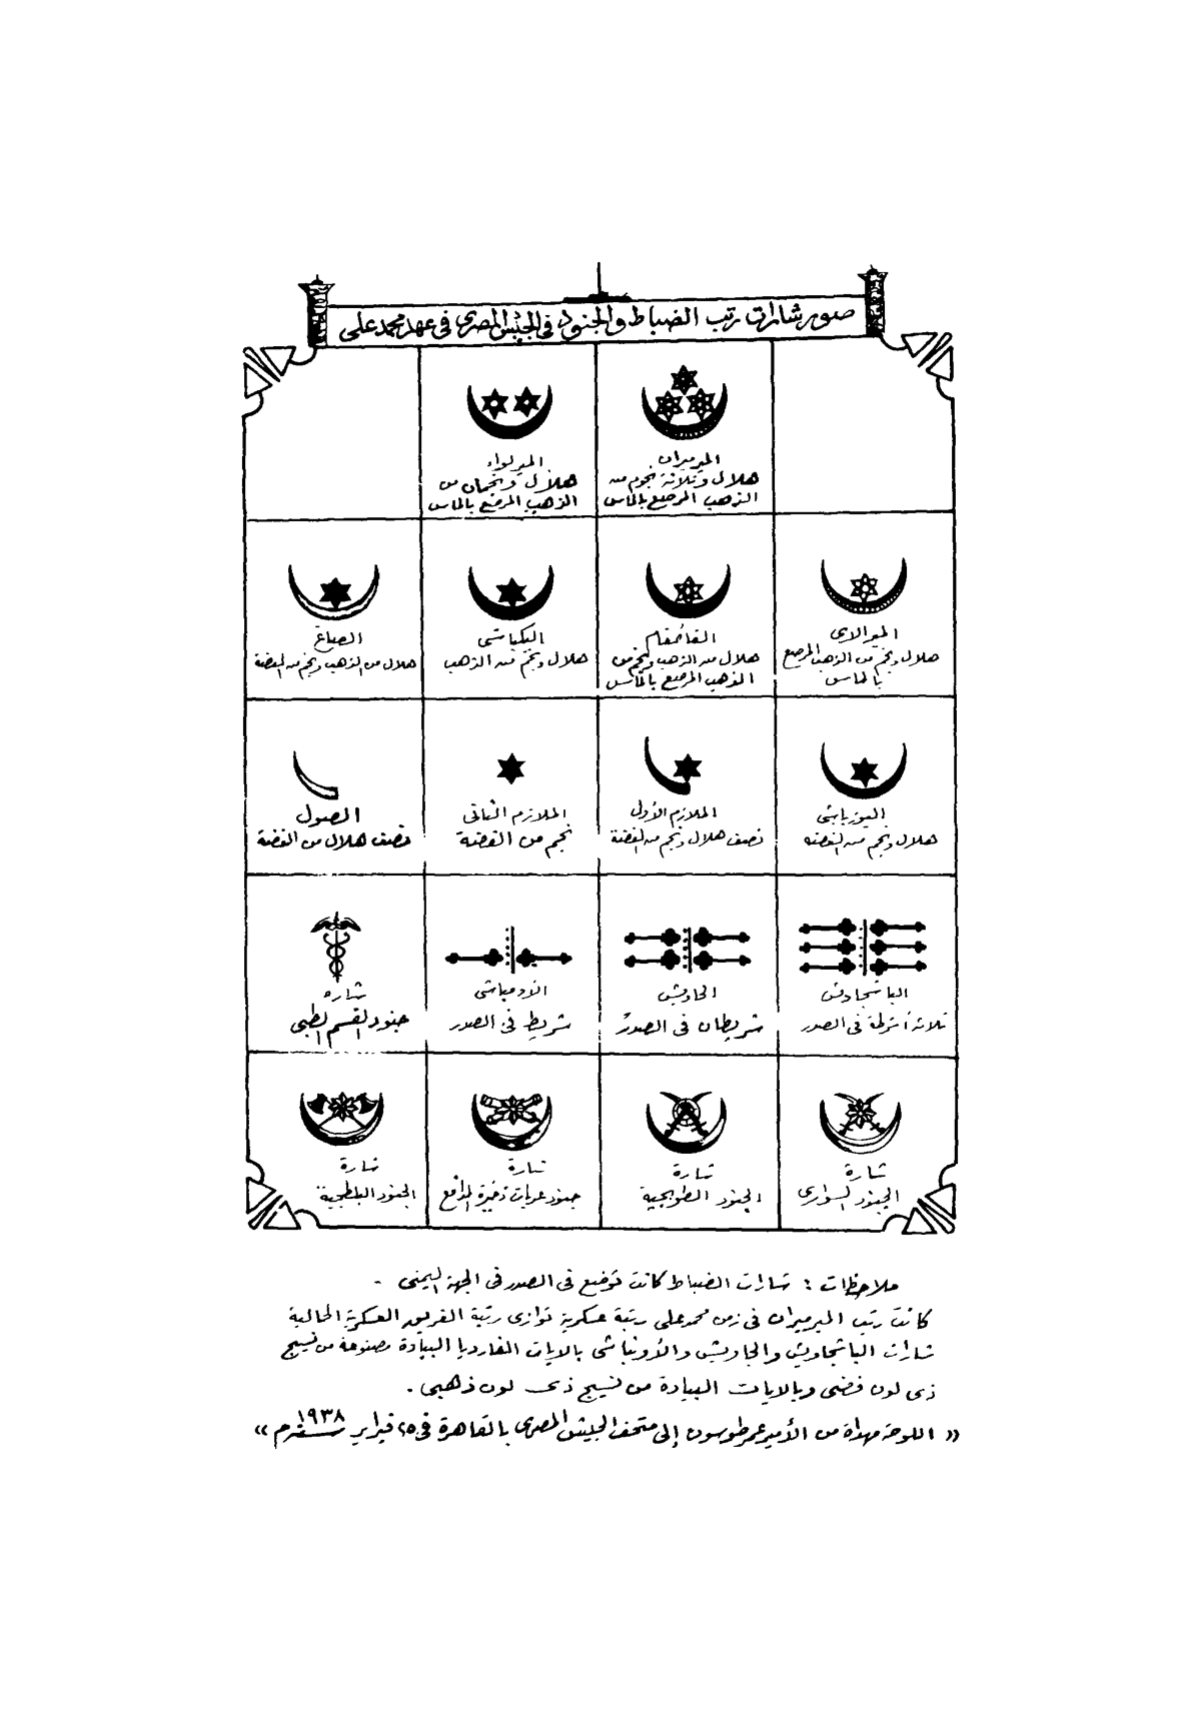 صور شارات رتب الضباط والجنود في الجيش المصري في عهد محمد علي
الميرميران
هلال وثلاثة نجوم من
الذهب المرصع بالماس
الميرلواء
هلال ونجمان من
الذهب المرصع بالماس
الميرالاى
هلال ونجم من الذهب المرصع
بالماس
القائمقام
هلال من الذهب ونجم من
الذهب المرصع بالماس
البكباشى
هلال ونجم من الذهب
الصاغ
هلال من الذهب ونجم من الفضة
اليوزباشى
هلال ونجم من الفضة
الملازم الأول
نصف هلال ونجم من الفضة
الملازم الثانى
نجم من الفضة
الصول
نصف هلال من الفضة
الباشجاويش
ثلاثة أشرطة فى الصدر
الجاويش
شريطان فى الصدر
الاومباشى
شريط فى الصدر
شاره
جنود القسم الطبى
شارة
الجنود السوارى
شارة
الجنود الطوبجية
شارة
جنود عربات ذخيرة المدافع
شارة
الجنود البلطجية
ملاحظات : شارات الضباط كانت توضع فى الصدر فى الجهة اليمنى .
كانت رتب الميرميران فى زمن محمد على رتبة عسكرية توازى رتبة الفريق العسكرية الحالية
شارات الباشجاويش والجاويش والأونباشى بالايات الغارديا البيادة مصنوعة من نسيج
ذى لون فضى وبالايات البيادة من نسيج ذى لون ذهبى .
« اللوحة مهداة من الأمير عمر طوسون إلى متحف الجيش المصرى بالقاهرة فى ٢٥ فبراير سنة ١٩٣٨ م »